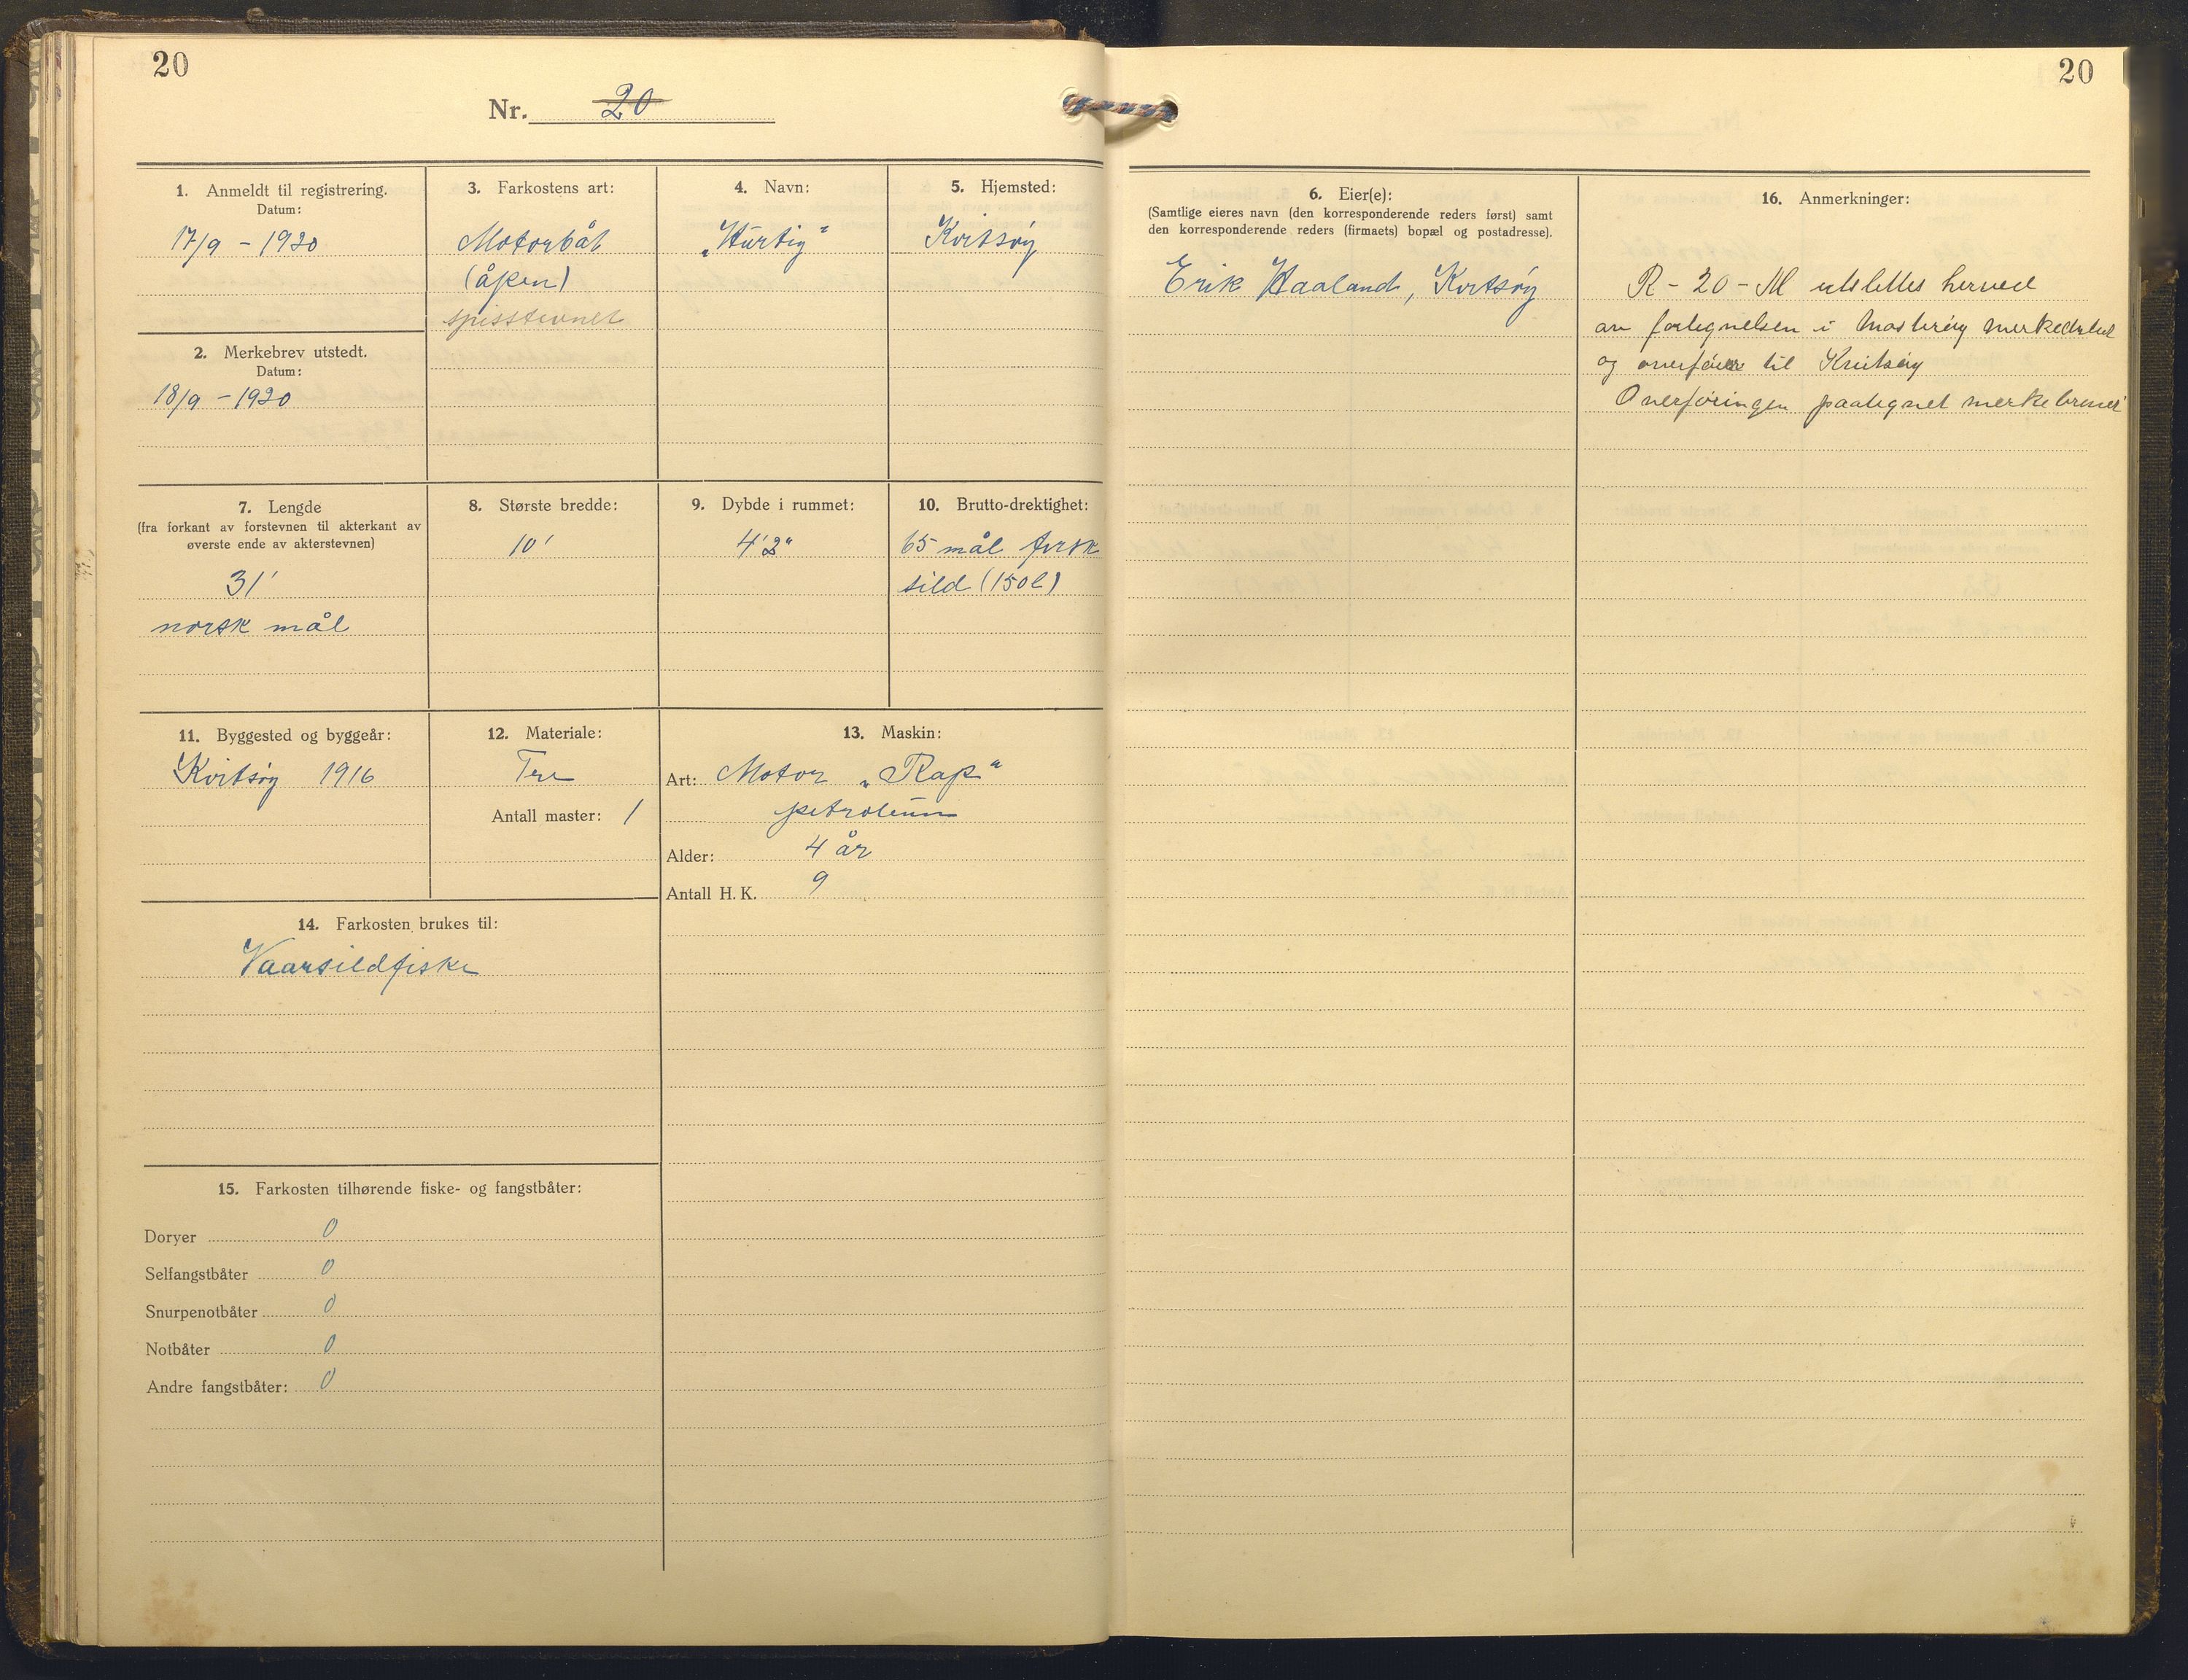 20
Nr. 20
1. Anmeldt til registrering.
Datum:
17/9 - 1920
2. Merkebrev utstedt.
Datum:
18/9 - 1920
3. Farkostens art:
Motorbåt
(åpen)
spisstevnet
4. Navn:
„Hurtig“
5. Hjemsted:
Kvitsøy
7. Lengde
(fra forkant av forstevnen til akterkant av
øverste ende av akterstevnen)
31'
norsk mål
8. Største bredde:
10'
9. Dybde i rummet:
4'2"
10. Brutto-drektighet:
65 mål fersk
sild (150 l)
11. Byggested og byggeår:
Kvitsøy 1916
12. Materiale:
Tre
Antall master: 1
13. Maskin:
Art: Motor „Rap“
petroleum
Alder: 4 år
Antall H. K. 9
14. Farkosten brukes til:
Vaarsildfiske
15. Farkosten tilhørende fiske- og fangstbåter:
Doryer 0
Selfangstbåter 0
Snurpenotbåter 0
Notbåter 0
Andre fangstbåter: 0
20
6. Eier(e):
(Samtlige eieres navn (den korresponderende reders først) samt
den korresponderende reders (firmaets) bopæl og postadresse).
Erik Haaland, Kvitsøy
16. Anmerkninger:
R - 20 - M utslettes herved
av fortegnelsen i Mosterøy merkedistrikt
og overføres til Kvitsøy
Overføringen paategnet merkebrevet